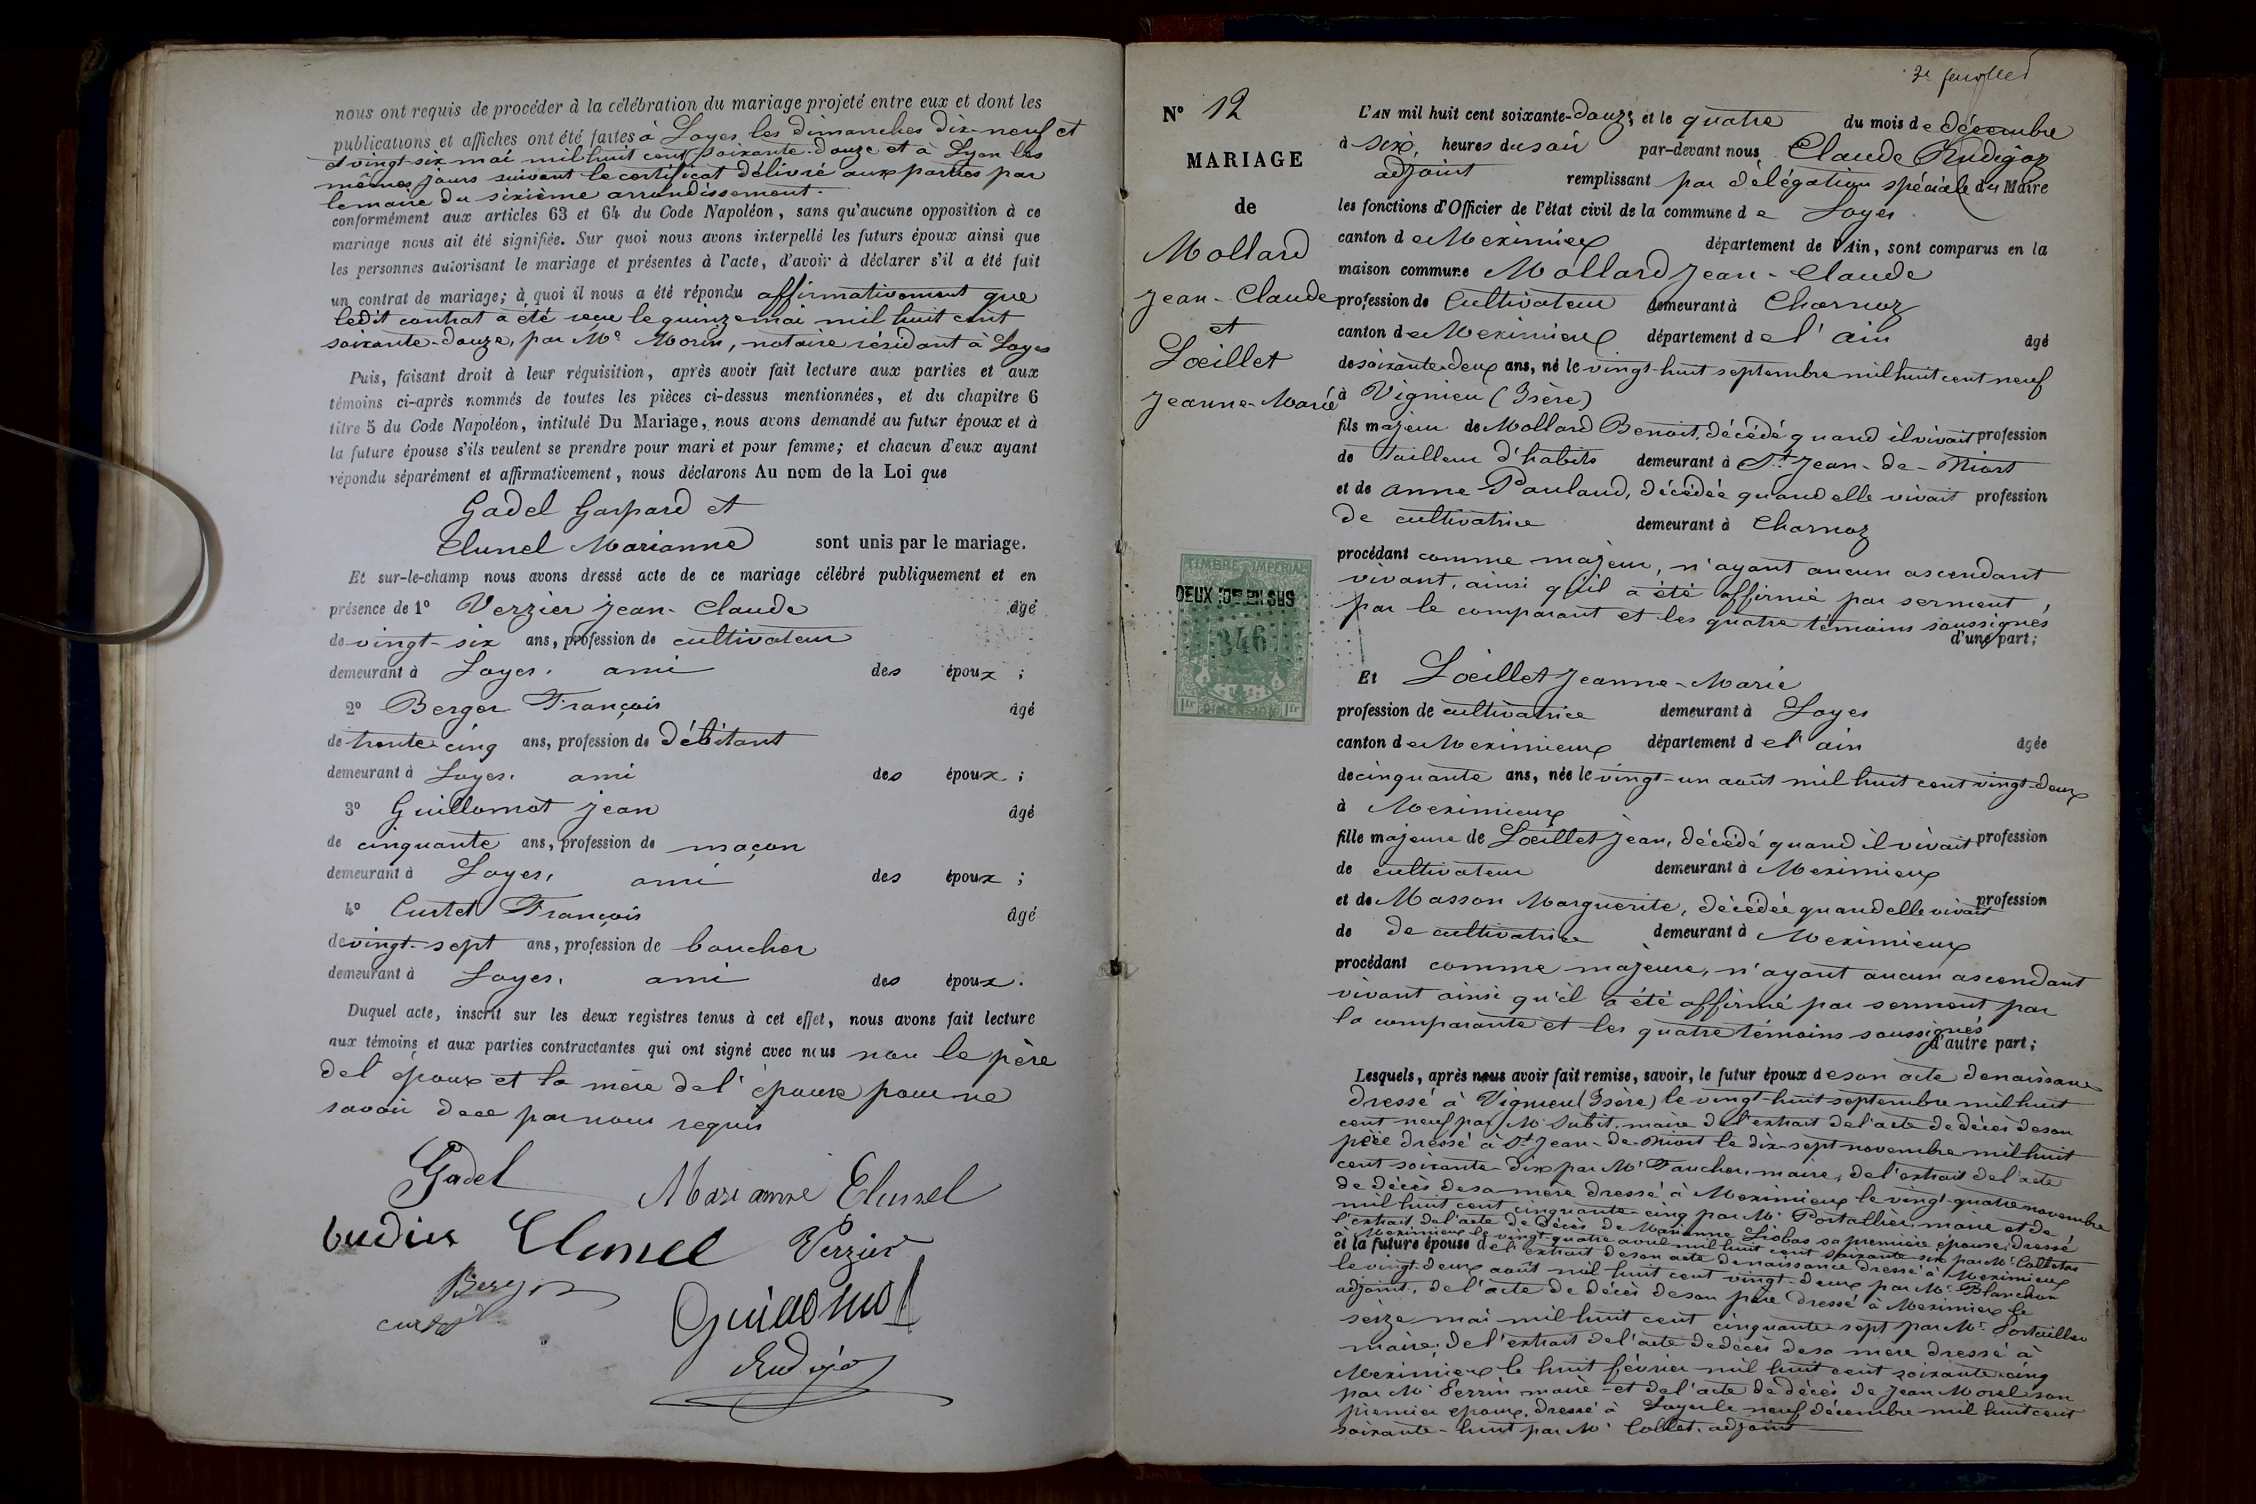 nous ont requis de procéder à la célébration du mariage projeté entre eux et dont les
publications et affiches ont été faites à Loyes les dimanches dix-neuf et
et vingt-six mai mil huit cent soixante-douze et à Lyon les
mêmes jours suivant le certificat délivré aux parties par
le maire du sixième arrondissement.
conformément aux articles 63 et 64 du Code Napoléon, sans qu'aucune opposition à ce
mariage nous ait été signifiée. Sur quoi nous avons interpellé les futurs époux ainsi que
les personnes autorisant le mariage et présentes à l'acte, d'avoir à déclarer s'il a été fait
un contrat de mariage; à quoi il nous a été répondu affirmativement que
ledit contrat a été reçu le quinze mai mil huit cent
soixante-douze, par Me Morin, notaire résidant à Loyes
Puis, faisant droit à leur réquisition, après avoir fait lecture aux parties et aux
témoins ci-après nommés de toutes les pièces ci-dessus mentionnées, et du chapitre 6
titre 5 du Code Napoléon, intitulé Du Mariage, nous avons demandé au futur époux et à
la future épouse s'ils veulent se prendre pour mari et pour femme; et chacun d'eux ayant
répondu séparément et affirmativement, nous déclarons Au nom de la Loi que
Gadel Gaspard et
Clunel Marianne sont unis par le mariage.
Et sur-le-champ nous avons dressé acte de ce mariage célébré publiquement et en
présence de 1° Verzier Jean-Claude âgé
de vingt-six ans, profession de cultivateur
demeurant à Loyes, ami des époux ;
2° Berger François âgé
de trente cinq ans, profession de débitant
demeurant à Loyes, ami des époux ;
3° Guillomot Jean âgé
de cinquante ans, profession de maçon
demeurant à Loyes, ami des époux ;
4° Curtet François âgé
de vingt-sept ans, profession de boucher
demeurant à Loyes, ami des époux.
Duquel acte, inscrit sur les deux registres tenus à cet effet, nous avons fait lecture
aux témoins et aux parties contractantes qui ont signé avec nous non le père
de l'époux et la mère de l'épouse pour ne
savoir de ce par nous requis
Gadel Marianne Clunel
Clunel Verzier
Berger
curtet Guillomot
Rudigoz
N° 12
MARIAGE
de
Mollard
Jean-Claude
et
Lœillet
Jeanne-Marie
TIMBRE IMPÉRIAL
DEUX 10es EN SUS
346
1fr DIMENSION 1fr
L'AN mil huit cent soixante-douze, et le quatre du mois de décembre
à six heures du soir par-devant nous Claude Rudigoz
adjoint remplissant par délégation spéciale du Maire
les fonctions d'Officier de l'état civil de la commune de Loyes
canton de Meximieux département de l'Ain, sont comparus en la
maison commune Mollard Jean-Claude
profession de Cultivateur demeurant à Charnoz
canton de Meximieux département de l'ain âgé
de soixante-deux ans, né le vingt-huit septembre mil huit cent neuf
à Vignieu (Isère)
fils majeur de Mollard Benoit, décédé quand il vivait profession
de tailleur d'habits demeurant à St Jean-de-Niort
et de anne Paulaud, décédée quand elle vivait profession
de cultivatrice demeurant à Charnoz
procédant comme majeur, n'ayant aucun ascendant
vivant, ainsi qu'il a été affirmé par serment,
par le comparant et les quatre témoins soussignés
d'une part;
Et Lœillet Jeanne-Marie
profession de cultivatrice demeurant à Loyes
canton de Meximieux département de l'ain âgée
de cinquante ans, née le vingt-un août mil huit cent vingt-deux
à Meximieux
fille majeure de Lœillet Jean, décédé quand il vivait profession
de cultivateur demeurant à Meximieux
et de Masson Marguerite, décédée quand elle vivait profession
de de cultivatrice demeurant à Meximieux
procédant comme majeure, n'ayant aucun ascendant
vivant ainsi qu'il a été affirmé par serment par
la comparante et les quatre témoins soussignés
d'autre part;
Lesquels, après nous avoir fait remise, savoir, le futur époux de son acte de naissance
dressé à Vignieu (Isère) le vingt-huit septembre mil huit
cent neuf par Mr Subit, maire de l'extrait de l'acte de décès de son
père dressé à St Jean-de-Niort le dix-sept novembre mil huit
cent soixante-dix par Mr Faucher, maire, de l'extrait de l'acte
de décès de sa mère dressé à Meximieux le vingt-quatre novembre
mil huit cent cinquante-cinq par Mr Portallier, maire et de
l'extrait de l'acte de décès de Marianne Liobas sa première épouse, dressé
à Meximieux le vingt-quatre avril mil huit cent soixante-six par Mr
et la future épouse de l'extrait de son acte de naissance dressé à Meximieux
le vingt-deux août mil huit cent vingt-deux par Mr Blanchon
adjoint, de l'acte de décès de son père dressé à Meximieux le
seize mai mil huit cent cinquante-sept par Mr Portallier
maire, de l'extrait de l'acte de décès de sa mère dressé à
Meximieux le huit février mil huit cent soixante-cinq
par Mr Perrin maire et de l'acte de décès de Jean Morel son
premier époux, dressé à Loyes le neuf décembre mil huit cent
soixante-huit par Mr Collet, adjoint